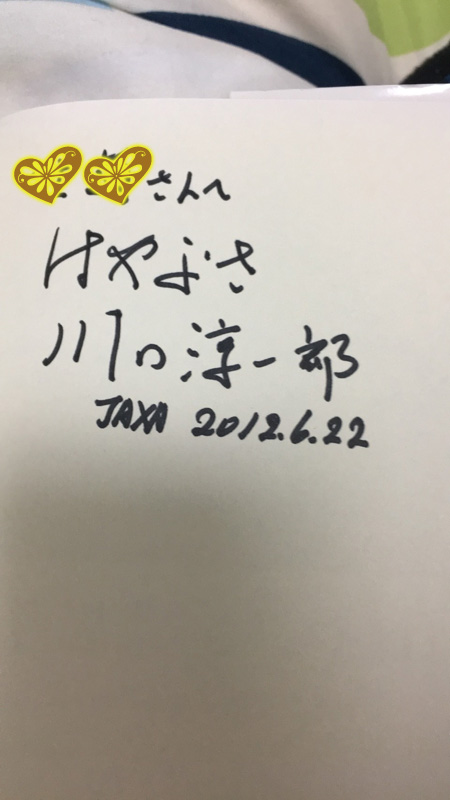 さんへ
はやぶさ
川口淳一郎
JAXA 2012.6.22